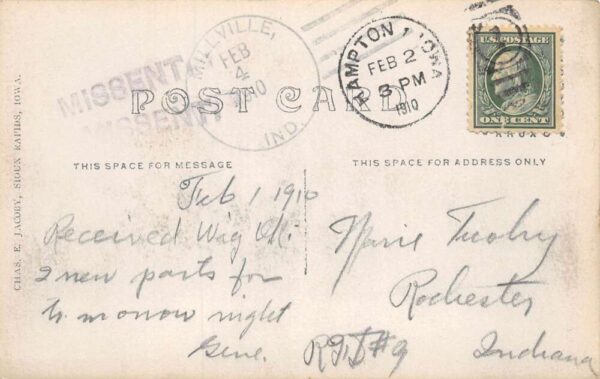 MISSENT
MISSENT
MILLVILLE,
FEB
4
1910
IND.
HAMPTON, IOWA
FEB 2
3 PM
1910
U.S. POSTAGE
ONE CENT
POST CARD
THIS SPACE FOR MESSAGE
THIS SPACE FOR ADDRESS ONLY
CHAS. E. JACOBY, SIOUX RAPIDS, IOWA.
Feb 1 1910
Received Wig OK.
2 new parts for
to morrow night
Gene.
Rochester
RFD #9 Indiana